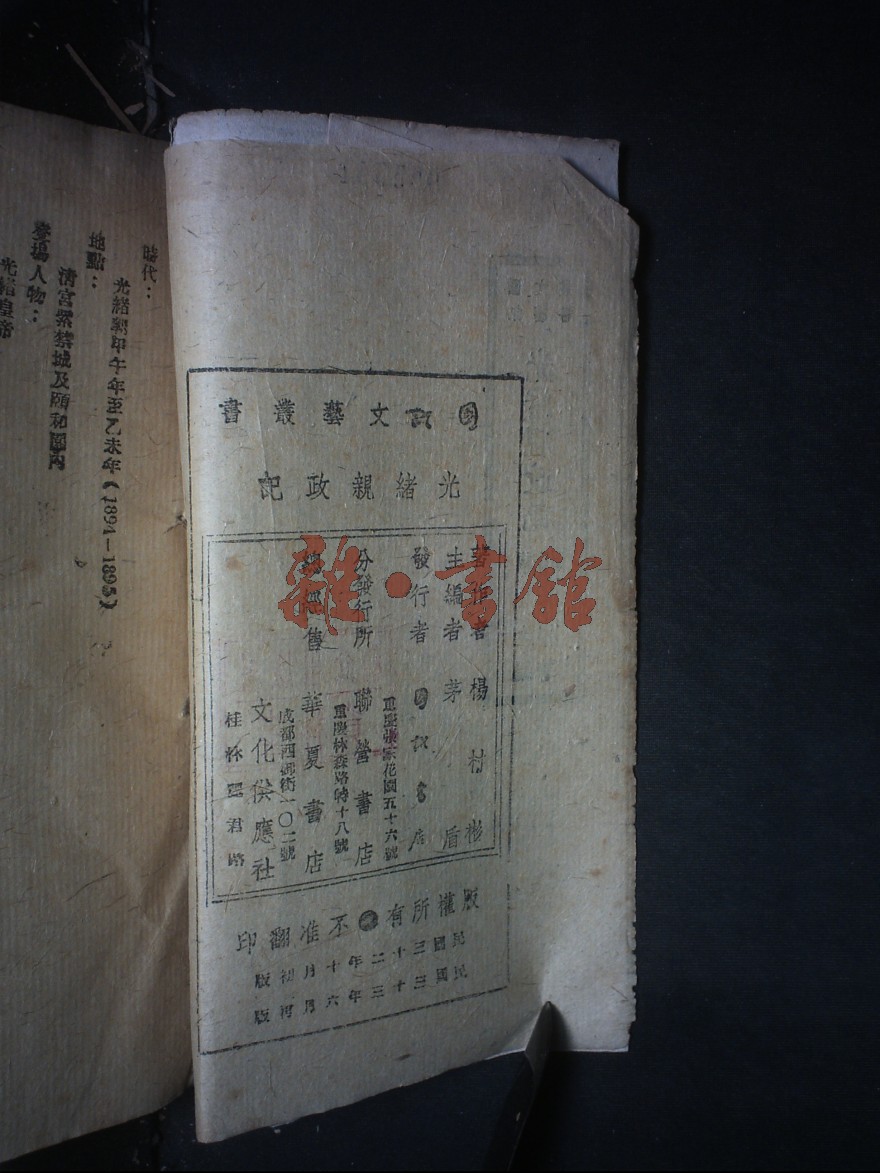 時代：
光緒朝甲午年至乙未年（1894—1895）
地點：
清宮紫禁城及頤和園內
登場人物：
光緒皇帝
國訊文藝叢書
光緒親政記
著作者 楊村彬
主編者 茅盾
發行者 國訊書店
重慶張家花園五十六號
分發行所 聯營書店
重慶林森路特十八號
總經售 華夏書店
成都西御街一〇二號
文化供應社
桂林麗君路
版權所有不准翻印
民國三十二年十月初版
民國三十三年六月再版
雜·書館